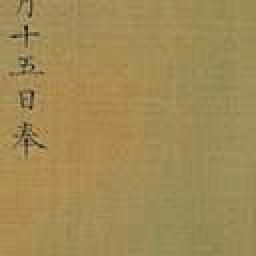 月十五日奉